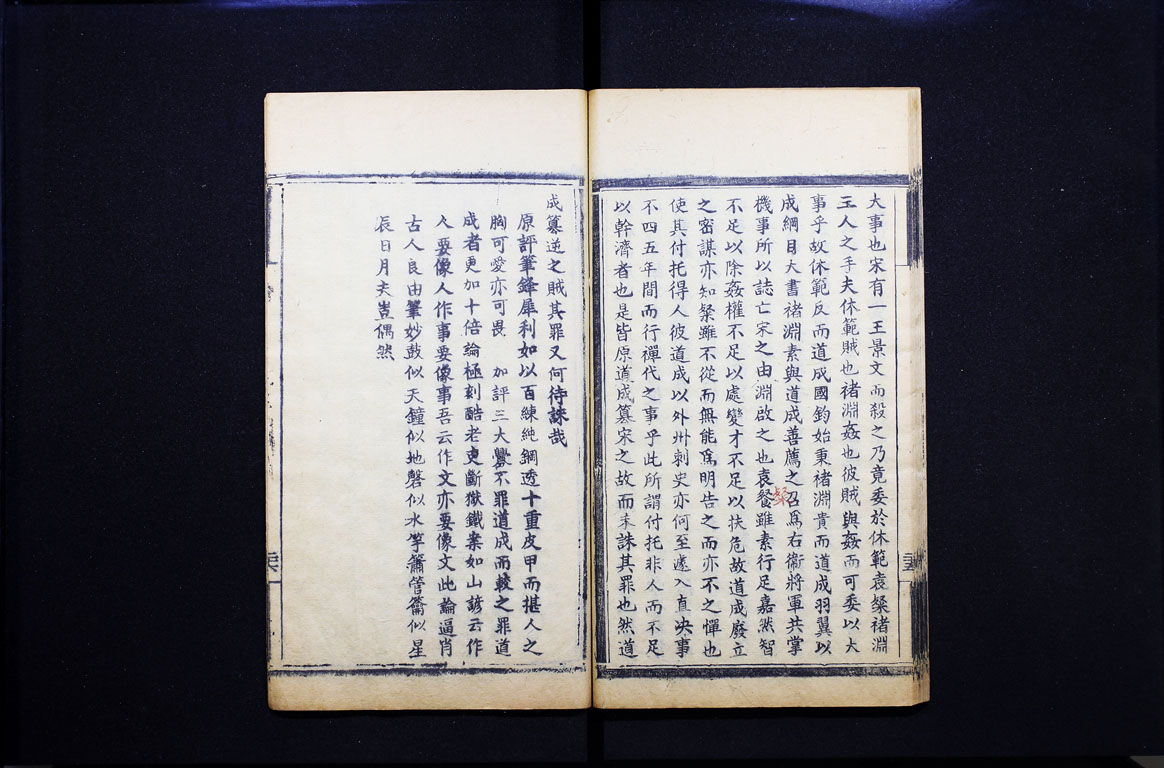 大事也宋有一王景文而殺之乃竟委於休範袁粲褚淵
王人之手夫休範賊也褚淵姦也彼賊與姦而可委以大
事乎故休範反而道成國鈞始秉褚淵貴而道成羽翼以
成綱目大書褚淵素與道成善薦之召爲右衞將軍共掌
機事所以誌亡宋之由淵啟之也袁餐雖素行足嘉然智
粲
不足以除姦權不足以處變才不足以扶危故道成廢立
之密謀亦知粲雖不從而無能爲明告之而亦不之憚也
使其付托得人彼道成以外州刺史亦何至遽入直决事
不四五年間而行禪代之事乎此所謂付托非人而不足
以幹濟者也是皆原道成簒宋之故而未誅其罪也然道
成簒逆之賊其罪又何待誅哉
原評筆鋒犀利如以百練純鋼透十重皮甲而堪人之
胸可愛亦可畏 加評三大釁不罪道成而較之罪道
成者更加十倍論極刻酷老吏斷獄鐵案如山諺云作
人要像人作事要像事吾云作文亦要像文此論逼肖
古人良由筆妙鼓似天鐘似地磬似水竽簫管籥似星
辰日月夫豈偶然